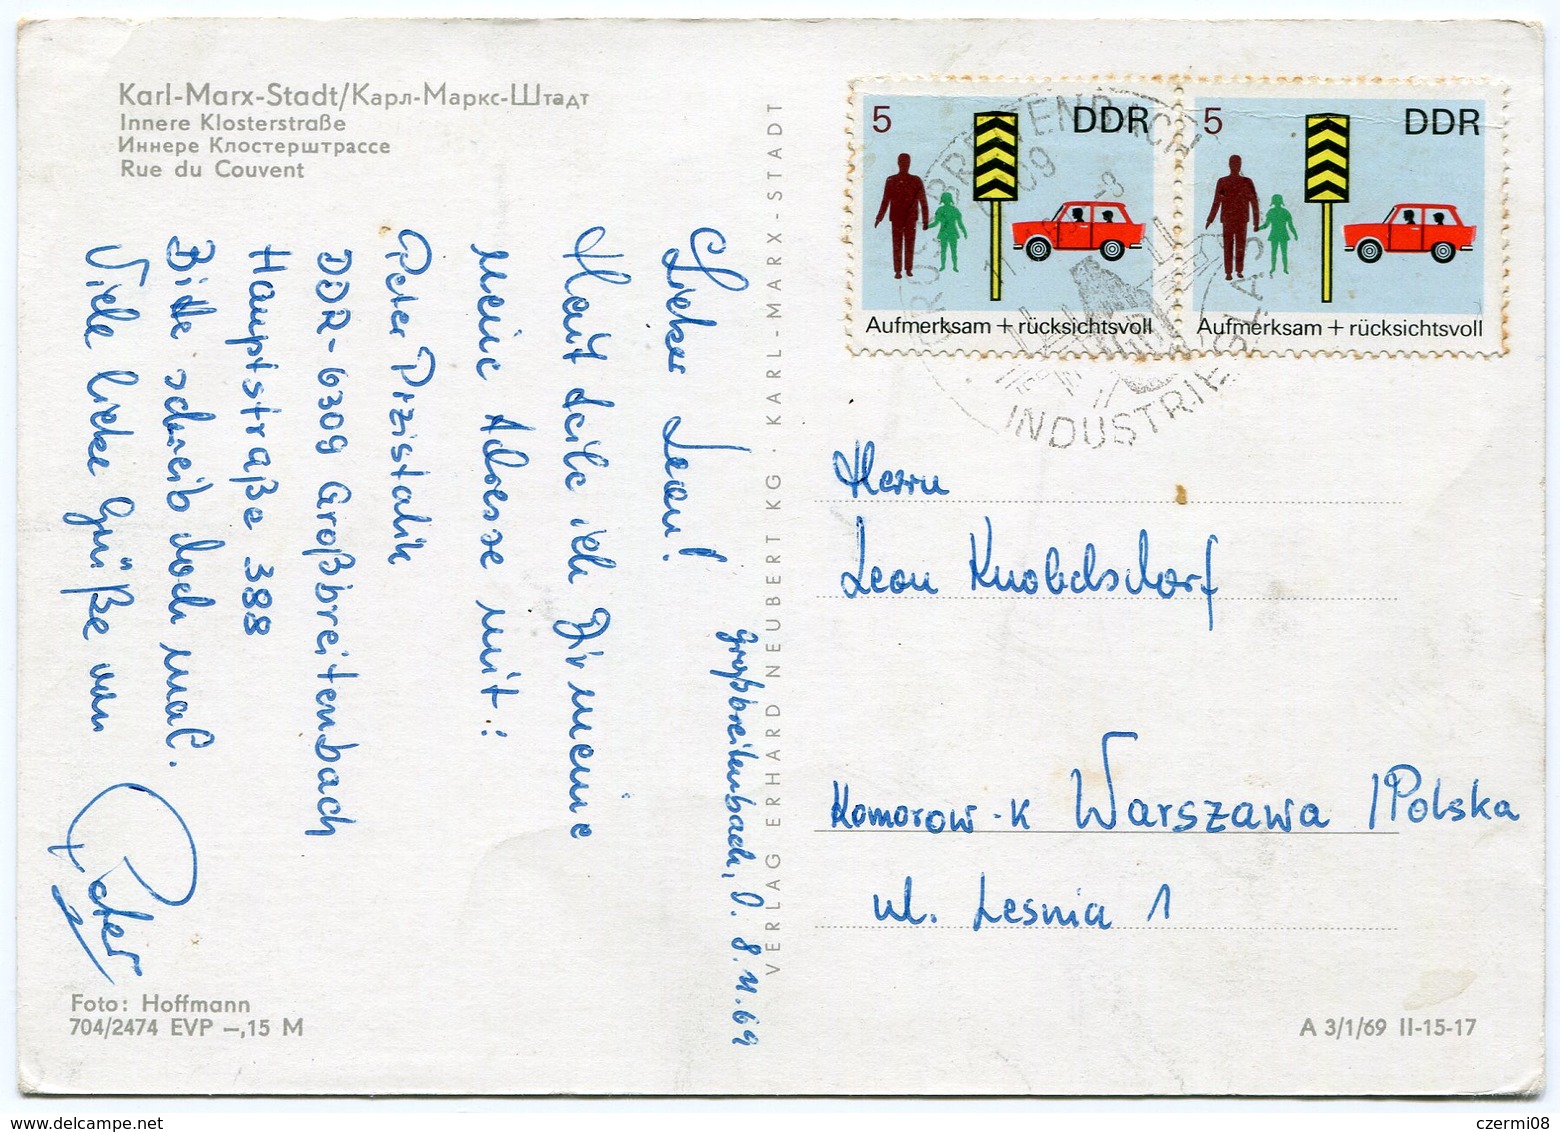 Karl-Marx-Stadt/Карл-Маркс-Штадт
Innere Klosterstraße
Иннере Клостерштрассе
Rue du Couvent
Großbreitenbach, d. 8.11.69
Lieber Leon!
Heut teile ich Dir meine
neue Adresse mit:
Peter Przistalik
DDR-6309 Großbreitenbach
Hauptstraße 388
Bitte schreib doch mal.
Viele liebe Grüße von
Peter
Foto: Hoffmann
704/2474 EVP –,15 M
VERLAG ERHARD NEUBERT KG · KARL-MARX-STADT
5 DDR
Aufmerksam + rücksichtsvoll
5 DDR
Aufmerksam + rücksichtsvoll
GROSSBREITENBACH
6309
-8
INDUSTRIE GLAS
Herrn
Leon Knobelsdorf
Komorow-K Warszawa /Polska
ul. Leśnia 1
A 3/1/69 II-15-17
www.delcampe.net
czermi08